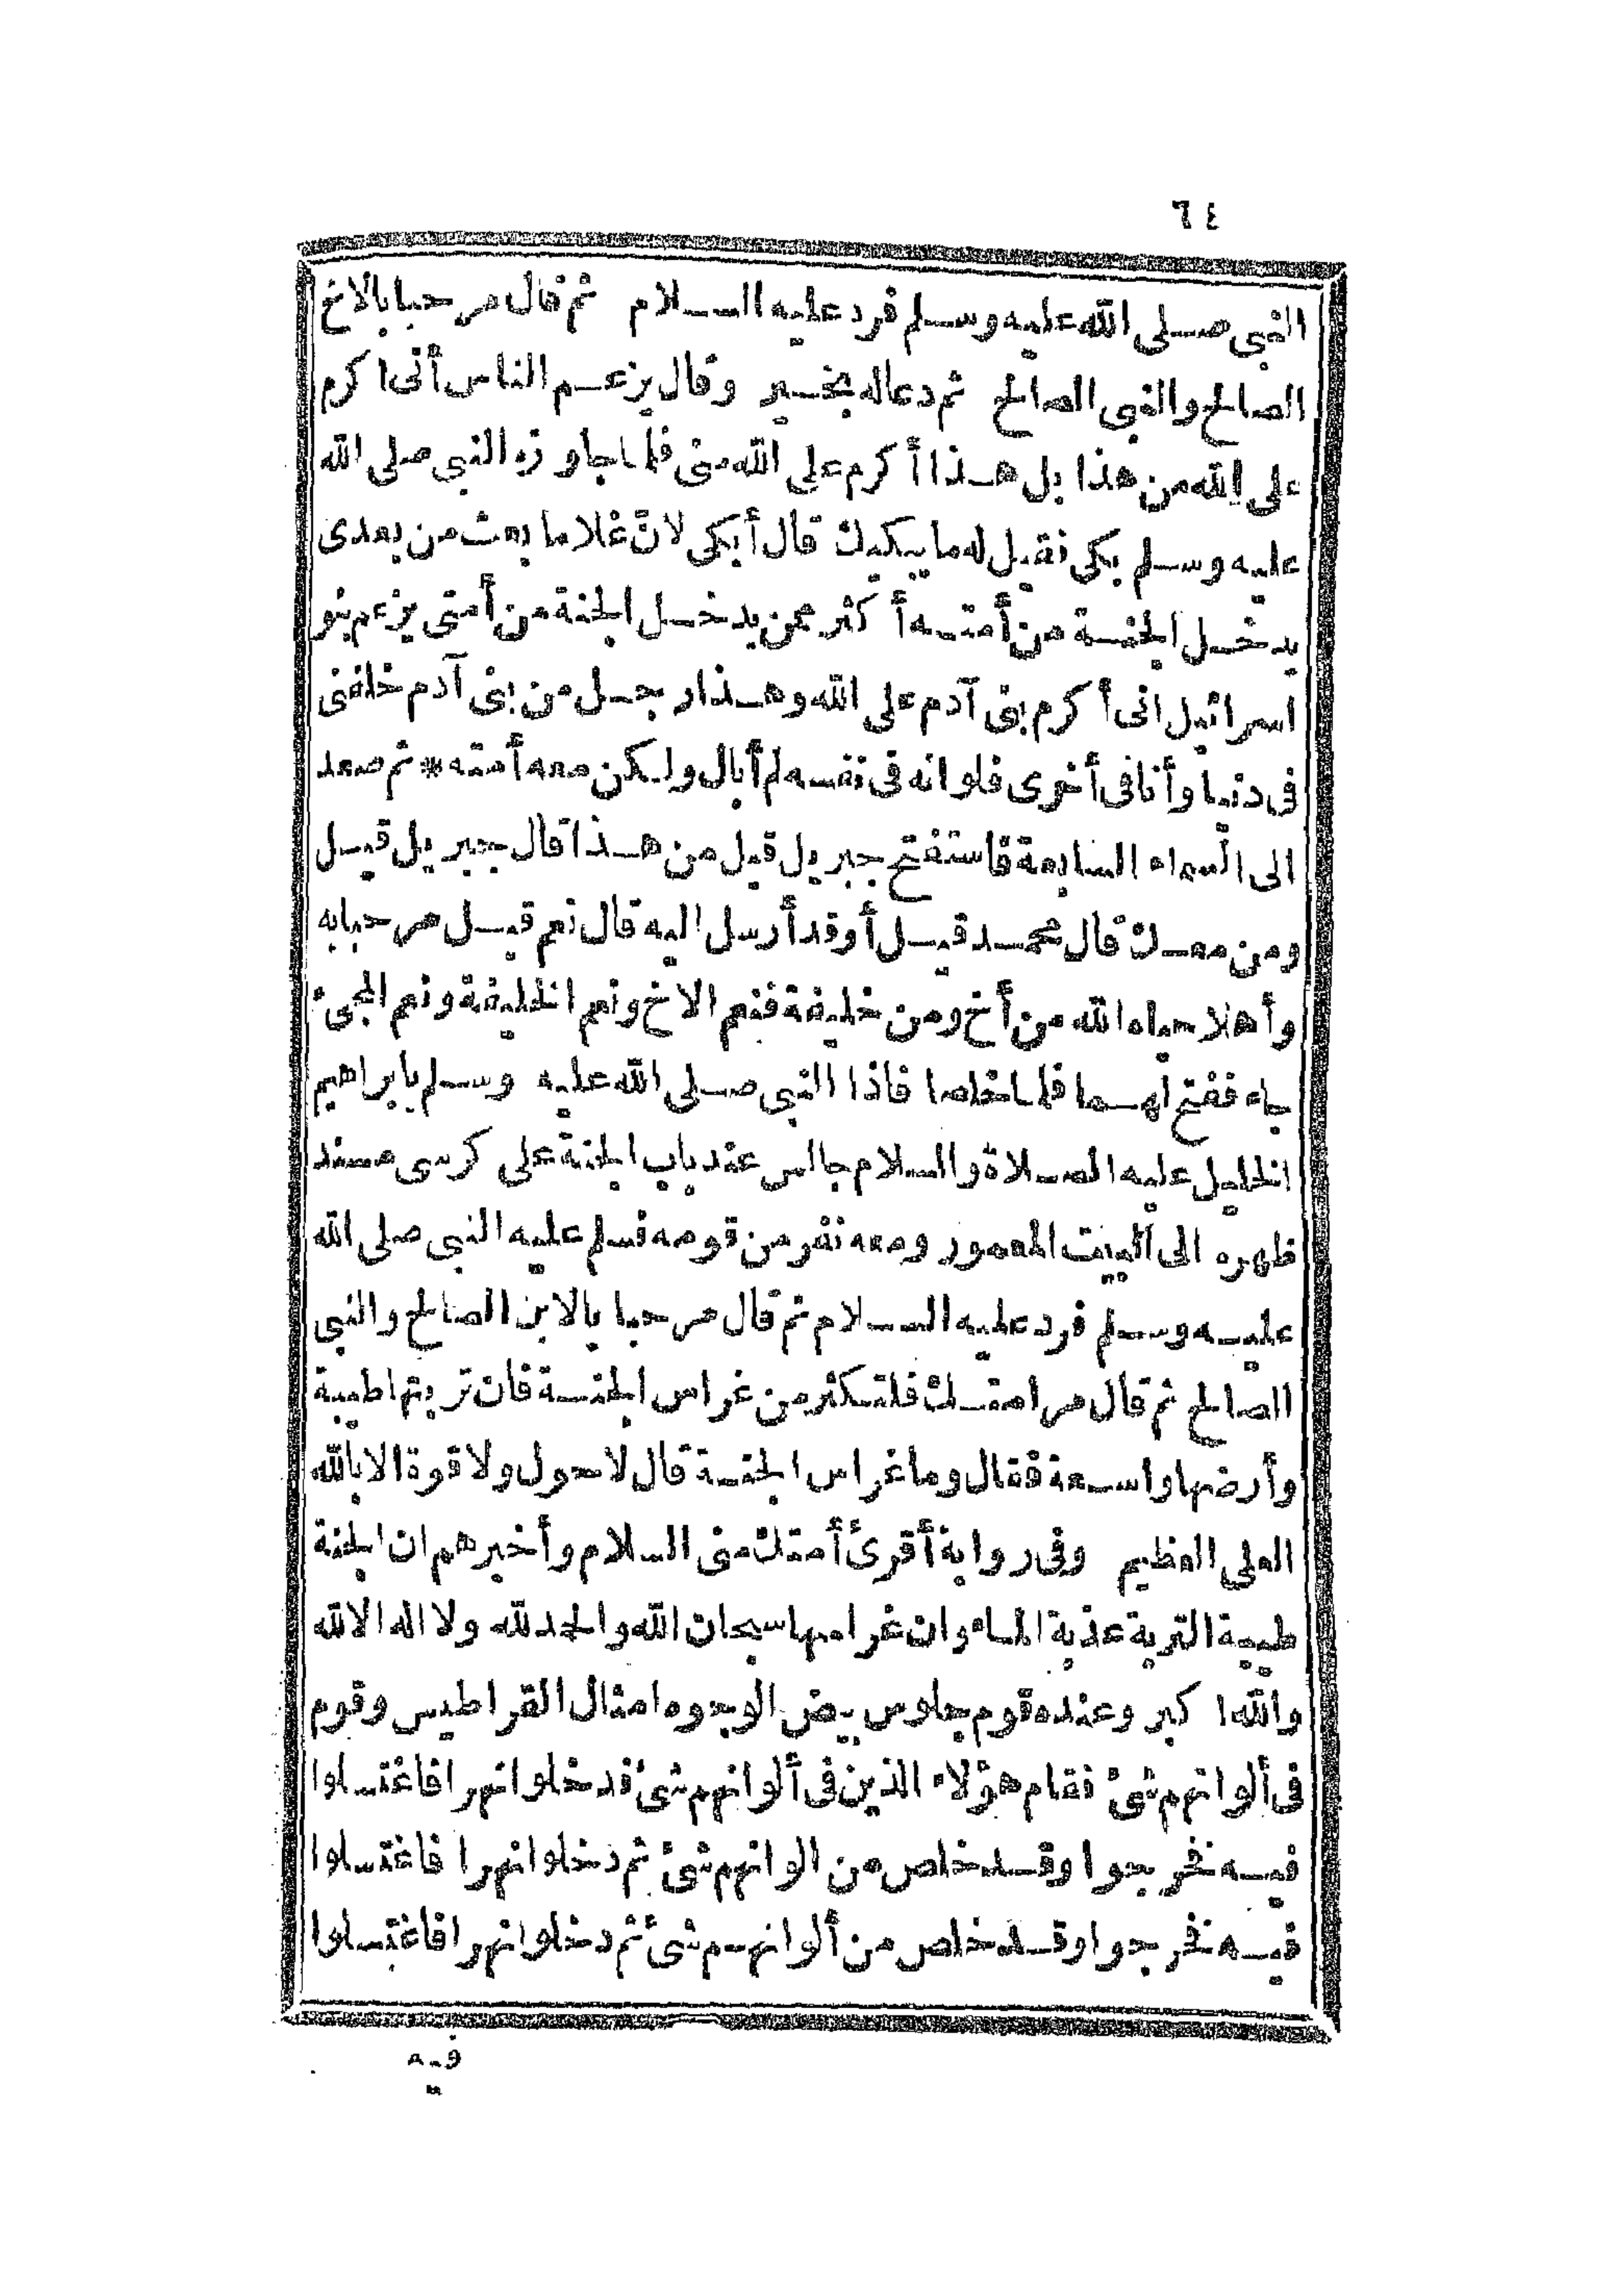 ٦٤
النبى صلى الله عليه وسلم فرد عليه السلام ثم قال مرحبا بالاخ
الصالح والنبى الصالح ثم دعاله بخير وقال يزعم الناس أنى اكرم
على الله من هذا بل هذا أكرم على الله منى فلما جاوزه النبى صلى الله
عليه وسلم بكى فقيل له ما يبكيك قال أبكى لانّ غلاما بعث من بعدى
يدخل الجنة من أمته أكثر ممن يدخل الجنة من أمتى يزعم بنو
اسرائيل انى أكرم بنى آدم على الله وهذا رجل من بنى آدم خلفنى
فى دنيا وأنا فى أخرى فلو انه فى نفسه لم أبال ولكن معه أمته * ثم صعد
الى السماء السابعة فاستفتح جبريل قيل من هذا قال جبريل قيل
ومن معك قال محمد قيل أوقد أرسل اليه قال نعم قيل مرحبا به
وأهلا حياه الله من أخ ومن خليفة فنعم الاخ ونعم الخليفة ونعم المجىء
جاء ففتح لهما فلما خلصا فاذا النبى صلى الله عليه وسلم بابراهيم
الخليل عليه الصلاة والسلام جالس عند باب الجنة على كرسى مسند
ظهره الى البيت المعمور ومعه نفر من قومه فسلم عليه النبى صلى الله
عليه وسلم فرد عليه السلام ثم قال مرحبا بالابن الصالح والنبى
الصالح ثم قال مر امتك فلتكثر من غراس الجنة فان تربتها طيبة
وأرضها واسعة فقال وما غراس الجنة قال لا حول ولا قوة الا بالله
العلى العظيم وفى رواية أقرئ أمتك منى السلام وأخبرهم ان الجنة
طيبة التربة عذبة الماء وان غراسها سبحان الله والحمد لله ولا اله الا الله
والله اكبر وعنده قوم جلوس بيض الوجوه امثال القراطيس وقوم
فى ألوانهم شئ فقام هؤلاء الذين فى ألوانهم شئ فدخلوا نهرا فاغتسلوا
فيه فخرجوا وقد خلص من الوانهم شئ ثم دخلوا نهرا فاغتسلوا
فيه فخرجوا وقد خلص من ألوانهم شئ ثم دخلوا نهرا فاغتسلوا
فيه